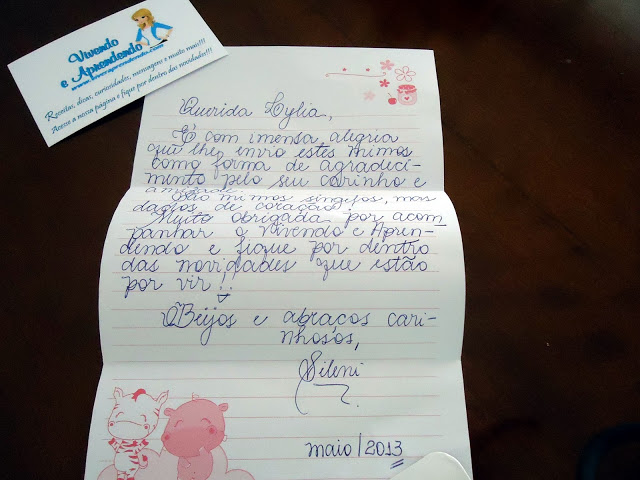 Vivendo
e Aprendendo
www.vivereaprendendo.com
Receitas, dicas, curiosidades, mensagens e muito mais!!!
Acesse a nossa página e fique por dentro das novidades!!!
Querida Lylia,
É com imensa alegria
que lhe envio estes mimos
como forma de agradeci-
mento pelo seu carinho e
amizade.
São mimos singelos, mas
dados de coração!
Muito obrigada por acom
panhar o Vivendo e Apren-
dendo e fique por dentro
das novidades que estão
por vir!!
Beijos e abraços cari-
nhosos,
Sileni
maio/2013